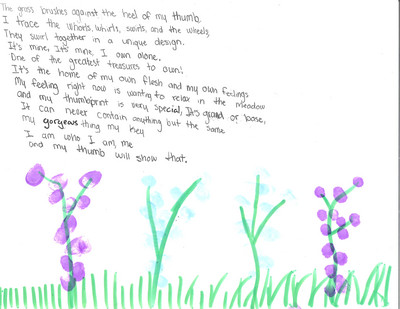 The grass brushes against the heel of my thumb.
I trace the whorls, whirls, swirls, and the wheels
They swirl together in a unique design.
It's mine, It's mine I own alone.
One of the greatest treasures to own!
It's the home of my own flesh and my own feelings
My feeling right now is wanting to relax in the meadow
and my thumbprint is very special, It's grand or base,
It can never contain anything but the same
my gorgeous thing my key
I am who I am, me
and my thumb will show that.